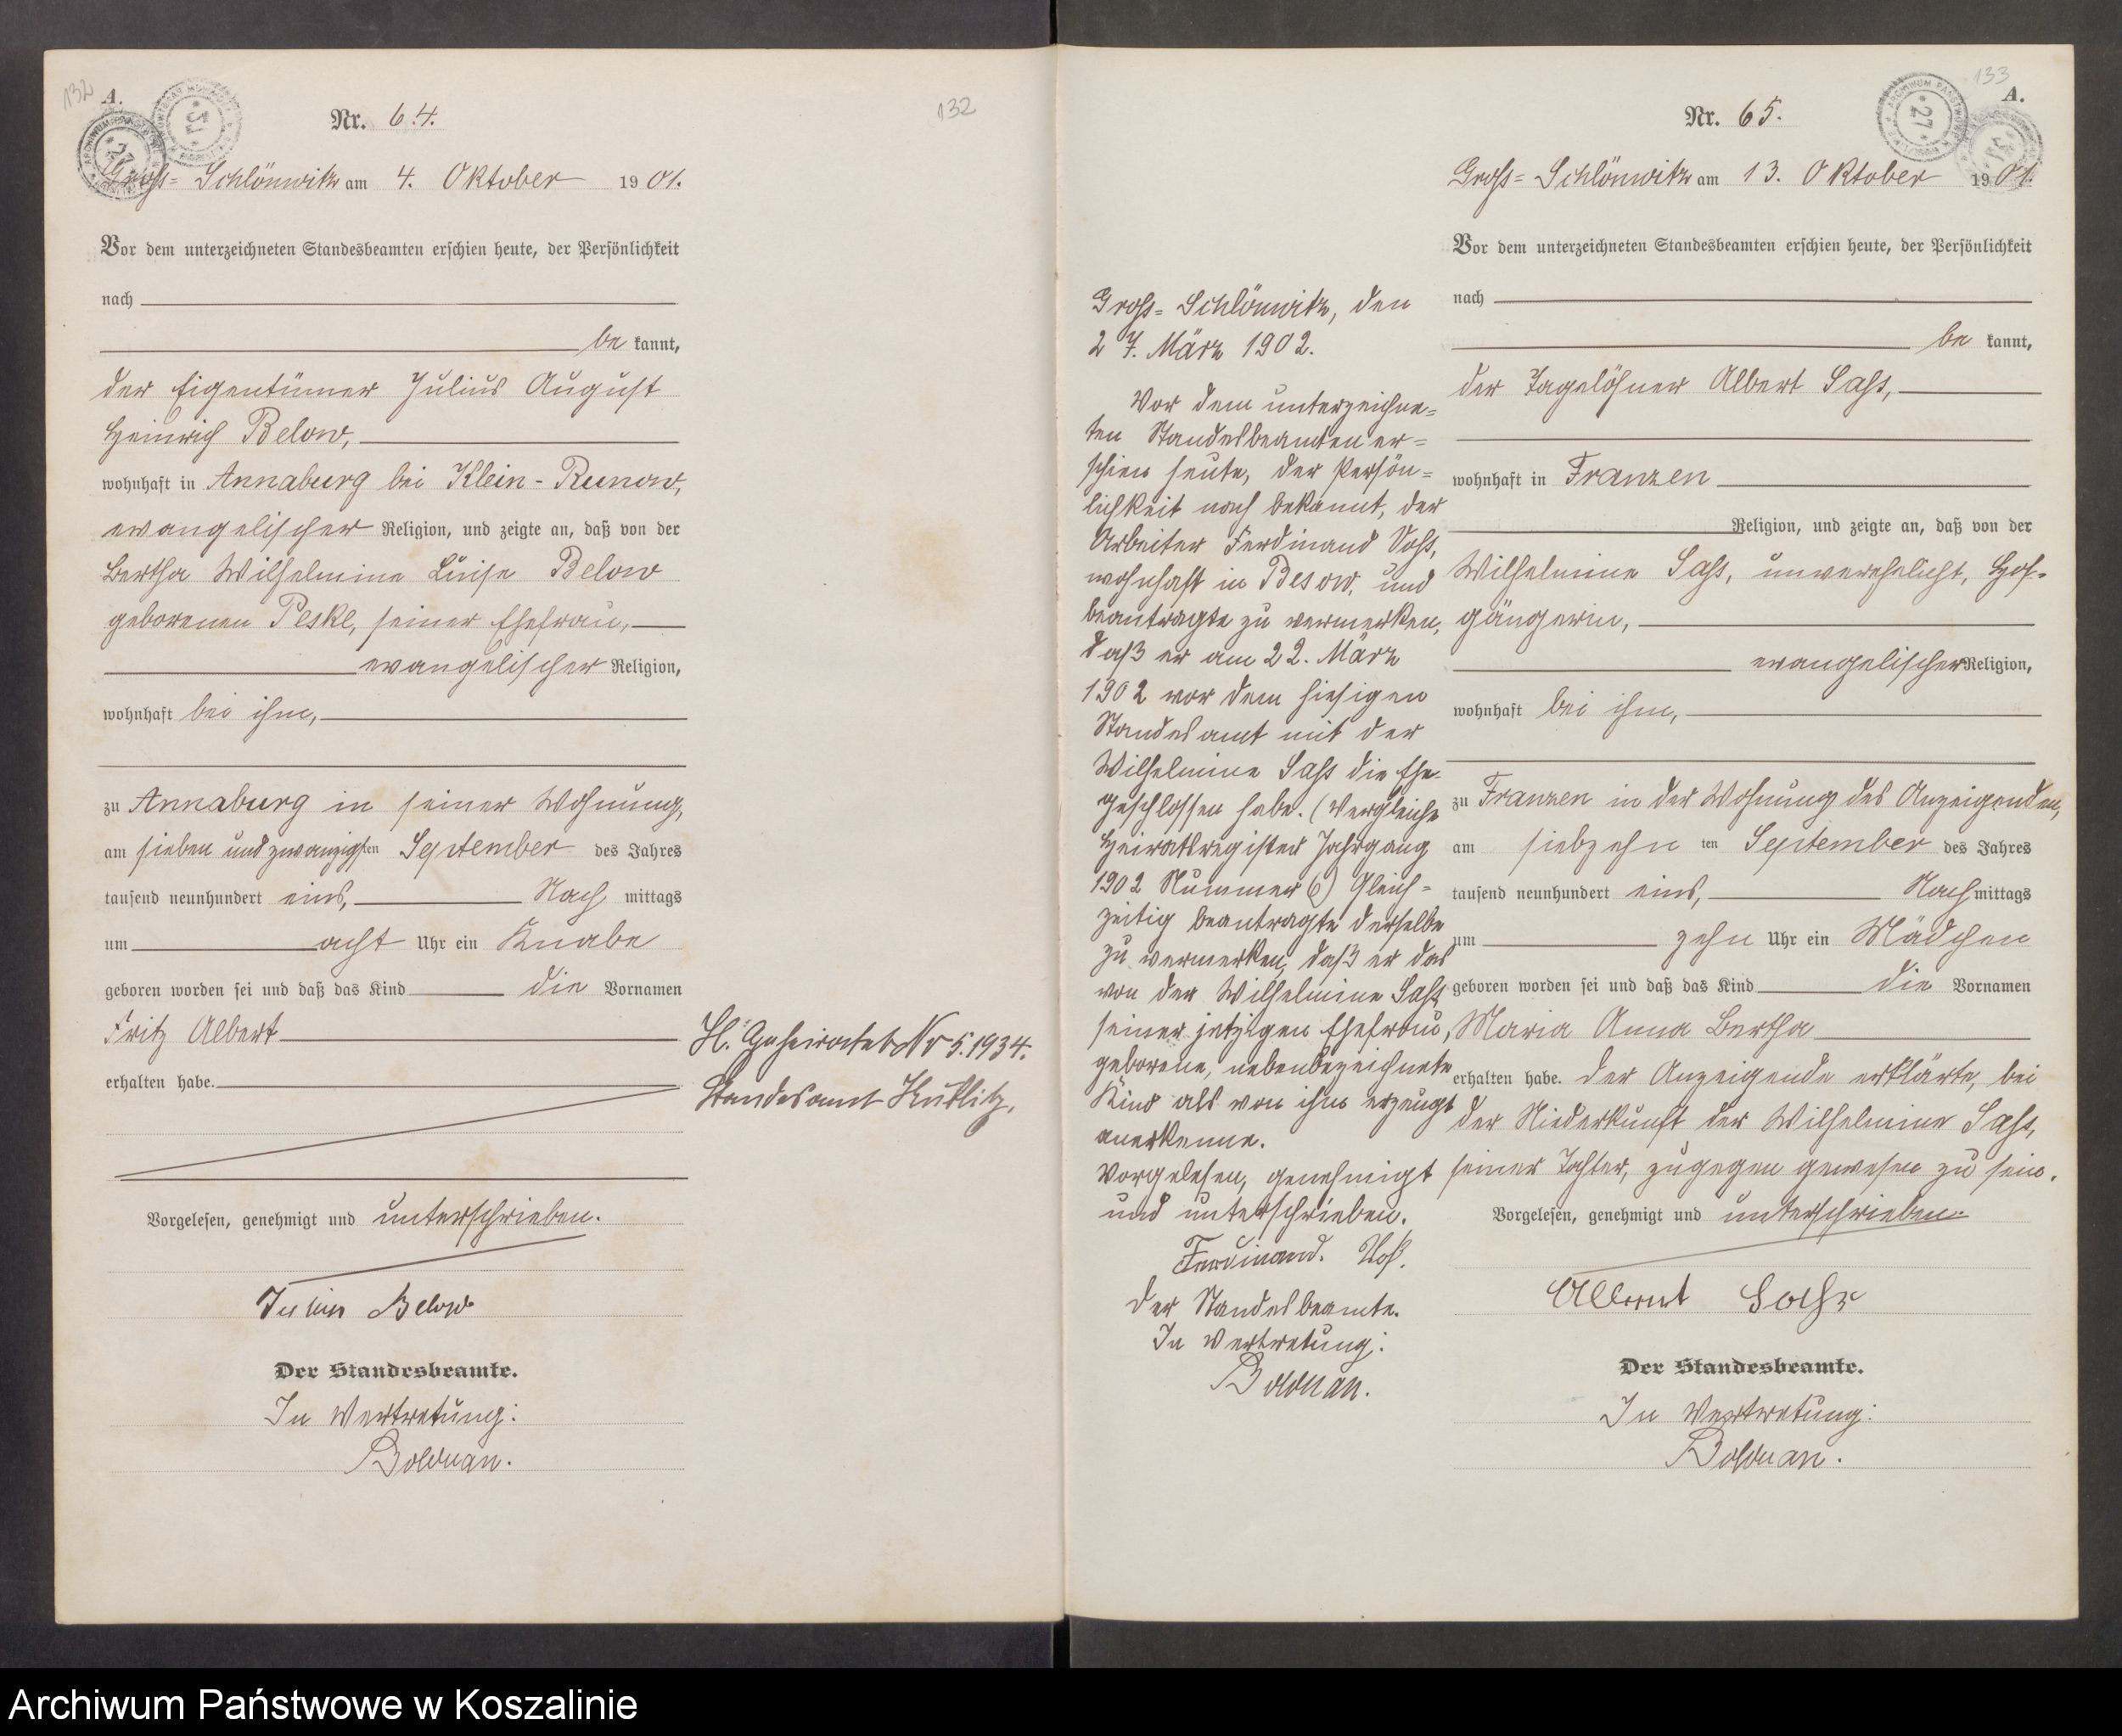 132
A.
Nr. 64.
132
Groß-Schlönwitz am 4. Oktober 1901.
Vor dem unterzeichneten Standesbeamten erschien heute, der Persönlichkeit
nach
be kannt,
der Eigentümer Julius August
Heinrich Below,
wohnhaft in Annaburg bei Klein-Runow,
evangelischer Religion, und zeigte an, daß von der
Bertha Wilhelmine Luise Below
geborenen Peske, seiner Ehefrau,
evangelischer Religion,
wohnhaft bei ihm,
zu Annaburg in seiner Wohnung,
am sieben und zwanzigsten September des Jahres
tausend neunhundert eins, Nach mittags
um acht Uhr ein Knabe
geboren worden sei und daß das Kind die Vornamen
Fritz Albert
erhalten habe.
Vorgelesen, genehmigt und unterschrieben.
Julius Below
Der Standesbeamte.
In Vertretung:
Bolduan.
H. Geheiratet Nr 5. 1934.
Standesamt Kublitz.
133
A.
Nr. 65.
Groß-Schlönwitz am 13. Oktober 1901.
Vor dem unterzeichneten Standesbeamten erschien heute, der Persönlichkeit
nach
be kannt,
der Tagelöhner Albert Saß,
wohnhaft in Franzen
Religion, und zeigte an, daß von der
Wilhelmine Saß, unverehelicht, Hof-
gängerin,
evangelischer Religion,
wohnhaft bei ihm,
zu Franzen in der Wohnung des Anzeigenden,
am siebzehn ten September des Jahres
tausend neunhundert eins, Nach mittags
um zehn Uhr ein Mädchen
geboren worden sei und daß das Kind die Vornamen
Maria Anna Bertha
erhalten habe. Der Anzeigende erklärte, bei
der Niederkunft der Wilhelmine Saß,
seiner Tochter, zugegen gewesen zu sein.
Vorgelesen, genehmigt und unterschrieben.
Albert Saß
Der Standesbeamte.
In Vertretung:
Bolduan.
Groß-Schlönwitz, den
27. März 1902.
Vor dem unterzeichne-
ten Standesbeamten er-
schien heute, der Persön-
lichkeit nach bekannt, der
Arbeiter Ferdinand Voß,
wohnhaft in Besow, und
beantragte zu vermerken,
daß er am 22. März
1902 vor dem hiesigen
Standesamt mit der
Wilhelmine Saß die Ehe
geschlossen habe. (Vergleiche
Heiratsregister Jahrgang
1902 Nummer 6) Gleich-
zeitig beantragte derselbe
zu vermerken, daß er das
von der Wilhelmine Saß
seiner jetzigen Ehefrau,
geborene, nebenbezeichnete
Kind als von ihm erzeugt
anerkenne.
Vorgelesen, genehmigt
und unterschrieben.
Ferdinand. Voß.
Der Standesbeamte.
In Vertretung:
Bolduan.
Archiwum Państwowe w Koszalinie